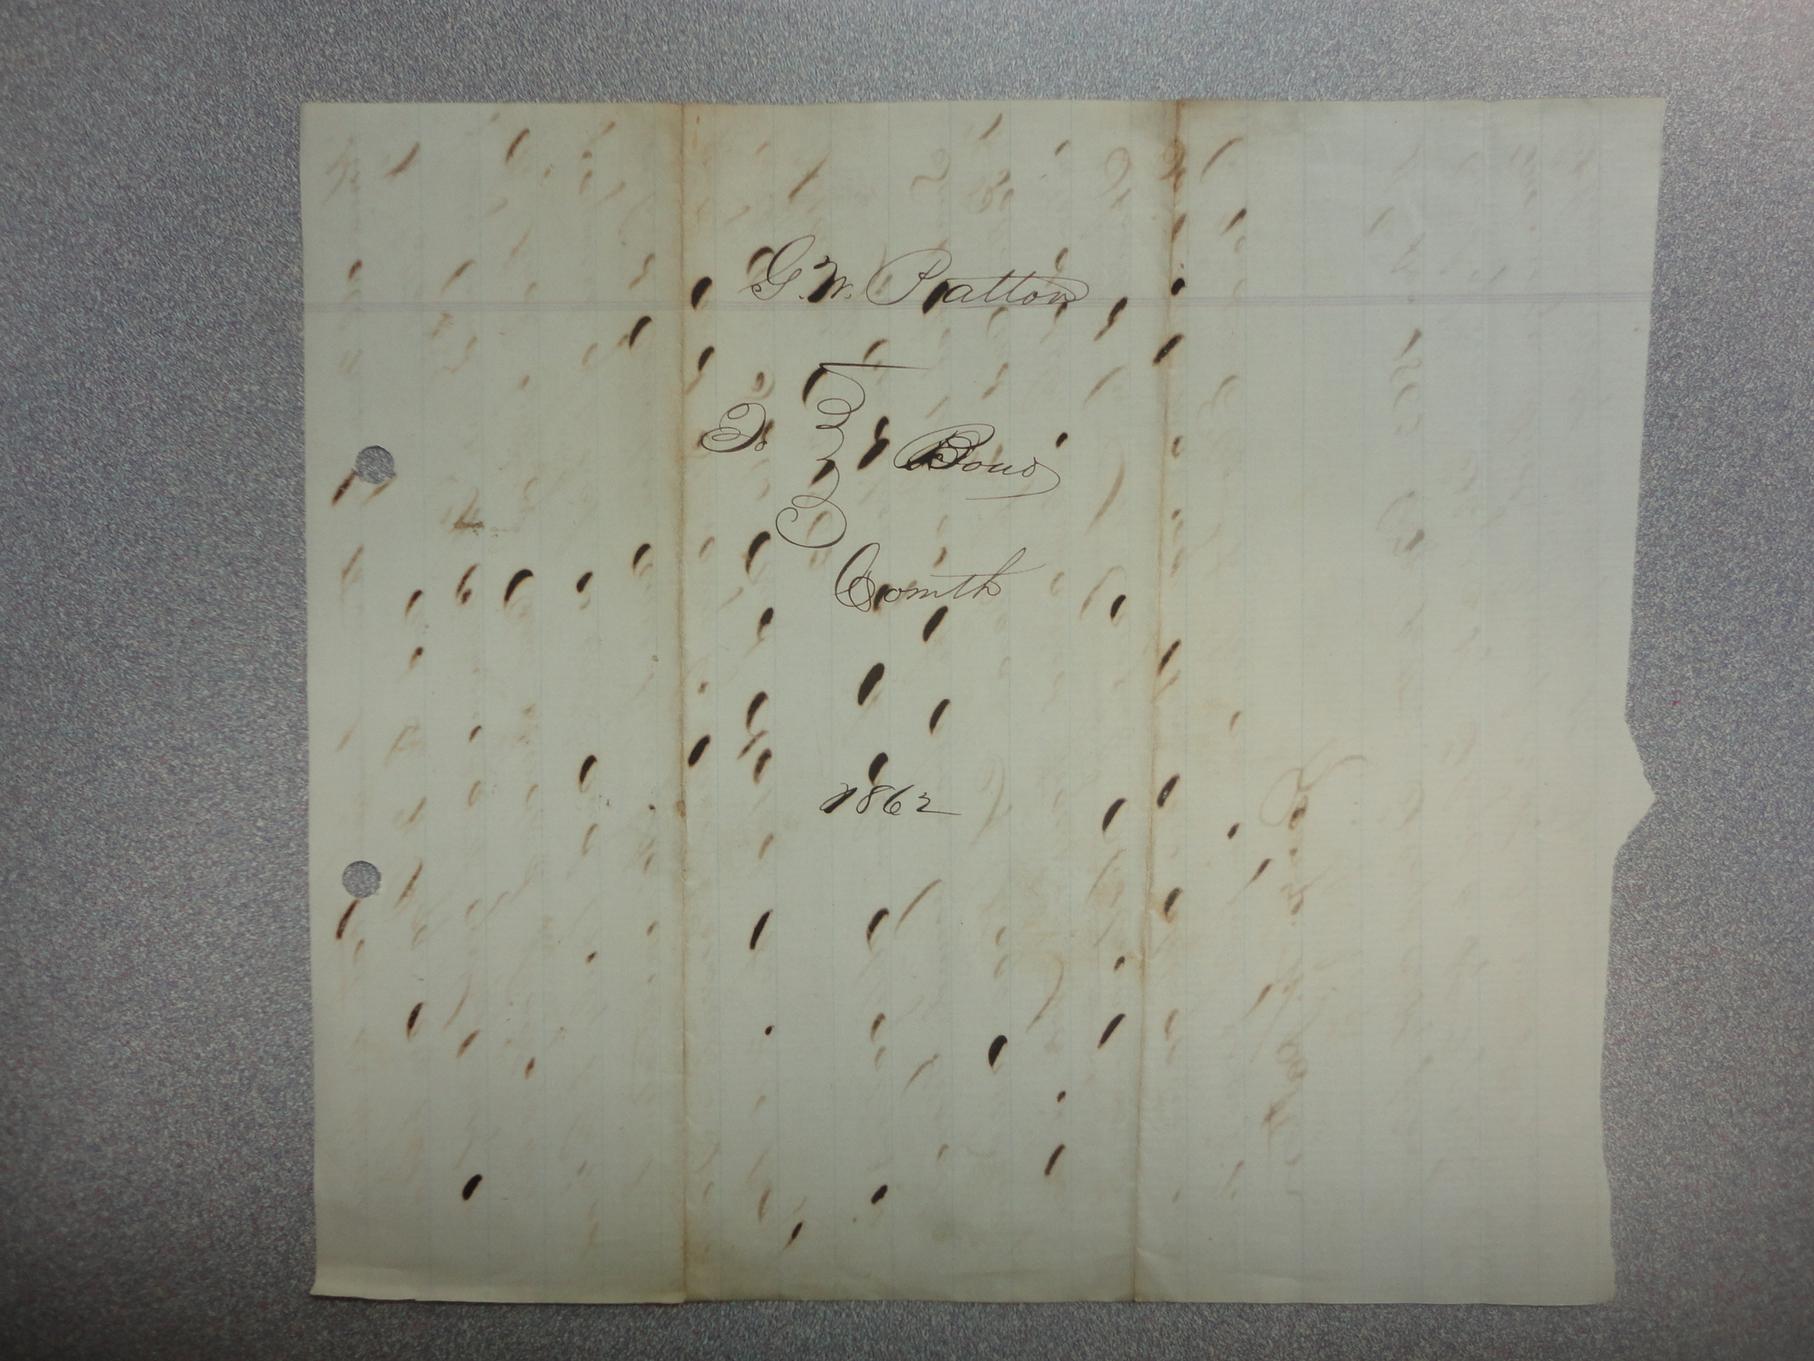 G. W. Patton
To } Bond
Comth
1862